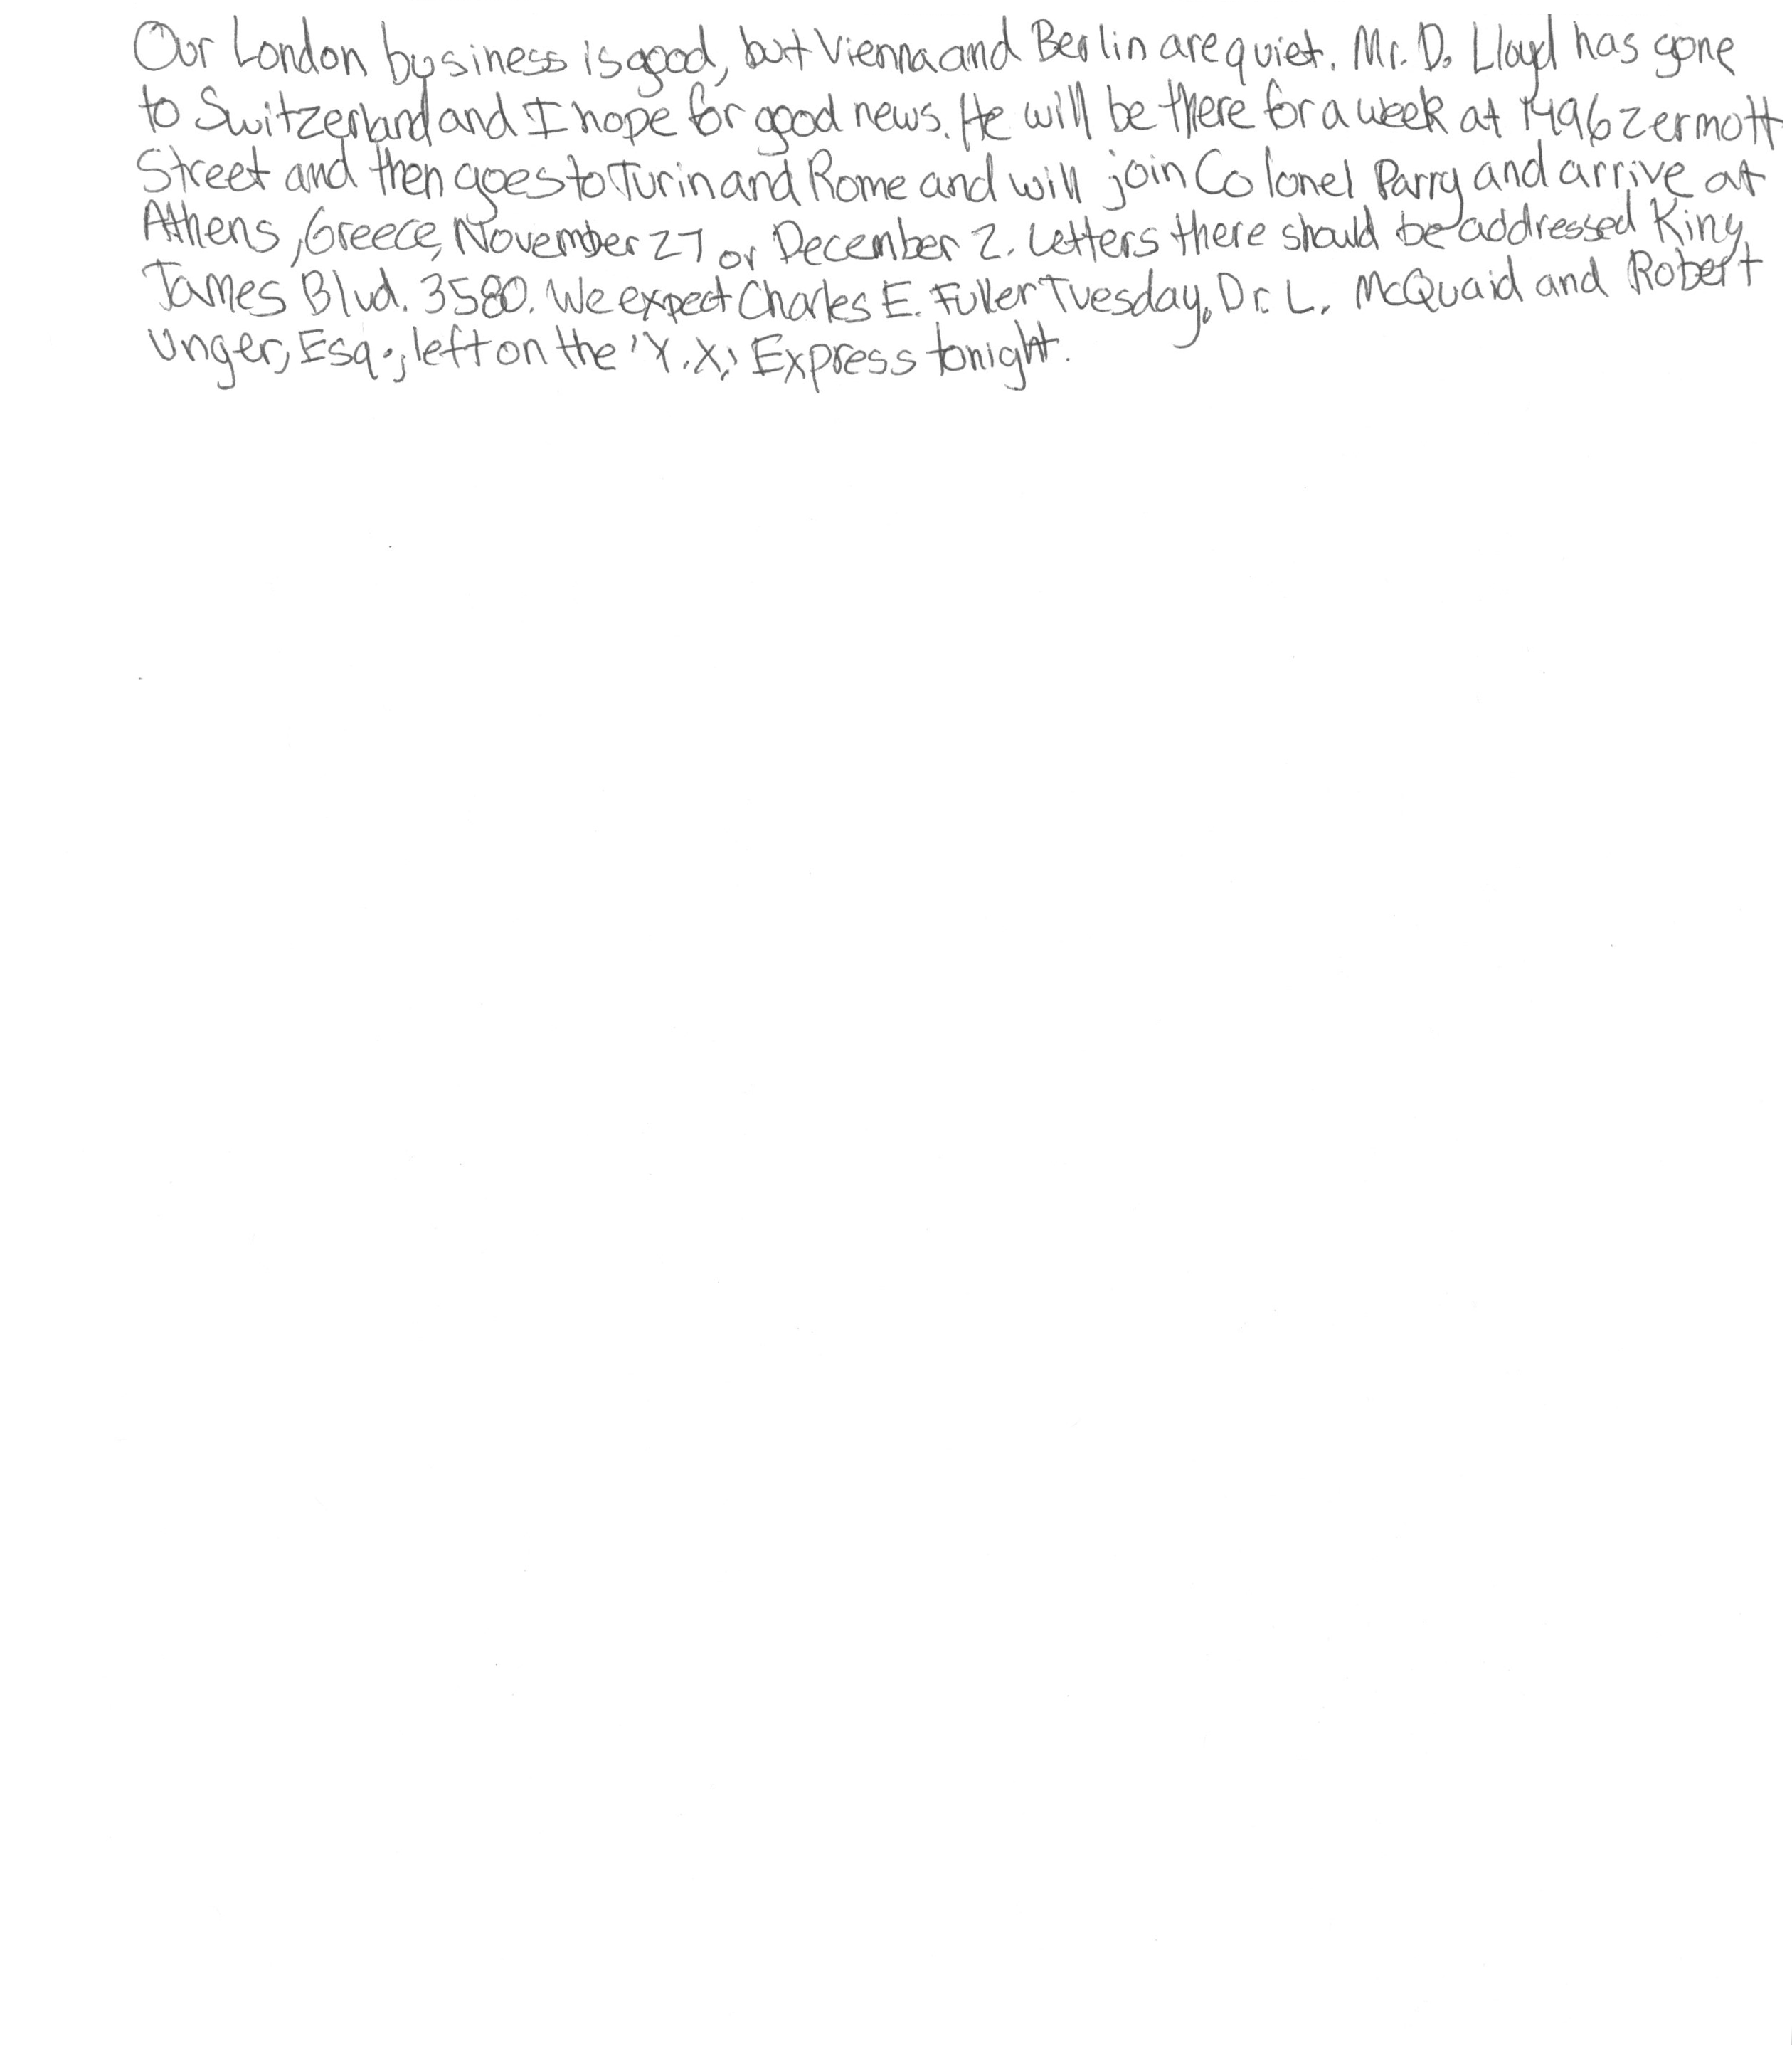 Our London business is good, but Vienna and Berlin are quiet. Mr. D. Lloyd has gone
to Switzerland and I hope for good news. He will be there for a week at 1496 zermott
Street and then goes to Turin and Rome and will join Colonel Parry and arrive at
Athens, Greece, November 27 or December 2. Letters there should be addressed King
James Blvd. 3580. We expect Charles E. Fuller Tuesday. Dr. L. McQuaid and Robert
Unger, Esq., left on the 'Y.X.' Express tonight.